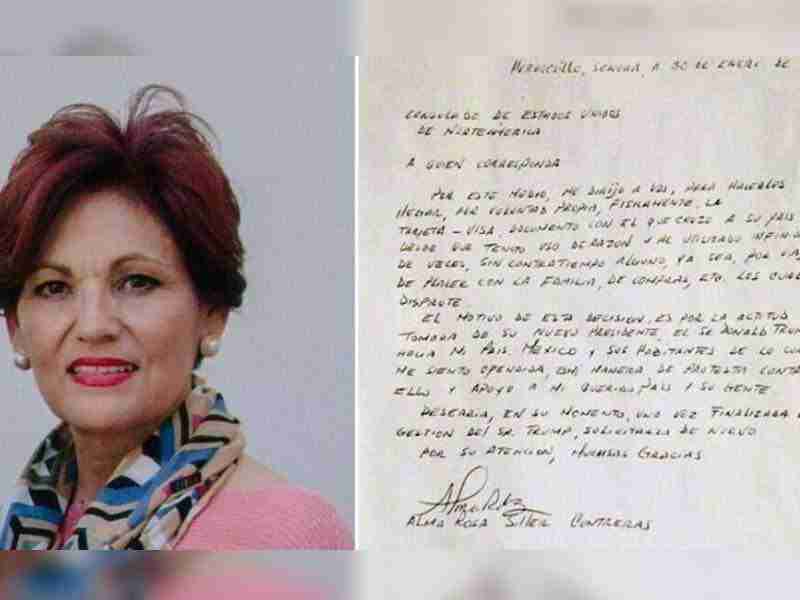 HERMOSILLO, SONORA, A 30 DE ENERO DE
CONSULADO DE ESTADOS UNIDOS
DE NORTEAMERICA
A QUIEN CORRESPONDA
POR ESTE MEDIO, ME DIRIJO A UDS, PARA HACERLOS
LLEGAR, POR VOLUNTAD PROPIA, FISICAMENTE, LA
TARJETA-VISA, DOCUMENTO CON EL QUE CRUZO A SU PAIS
DESDE QUE TENGO USO DE RAZON Y HE UTILIZADO INFINIDA
DE VECES, SIN CONTRATIEMPO ALGUNO, YA SEA, POR VIA
DE PLACER CON LA FAMILIA, DE COMPRAS, ETC. LOS CUAL
DISFRUTE.
EL MOTIVO DE ESTA DECISION, ES POR LA ACTITUD
TOMADA DE SU NUEVO PRESIDENTE, EL SR DONALD TRUM
HACIA MI PAIS MEXICO Y SUS HABITANTES DE LO CUA
ME SIENTO OFENDIDA, ES MI MANERA DE PROTESTA CONTRA
ELLO Y APOYO A MI QUERIDO PAIS Y SU GENTE
DESEARIA, EN SU MOMENTO, UNA VEZ FINALIZADA
GESTION DEL SR. TRUMP, SOLICITARLA DE NUEVO
POR SU ATENCION, MUCHAS GRACIAS
ALMA ROSA SITTER CONTRERAS